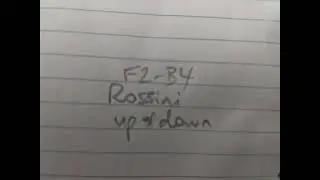 F2-B4
Rossini
up & down